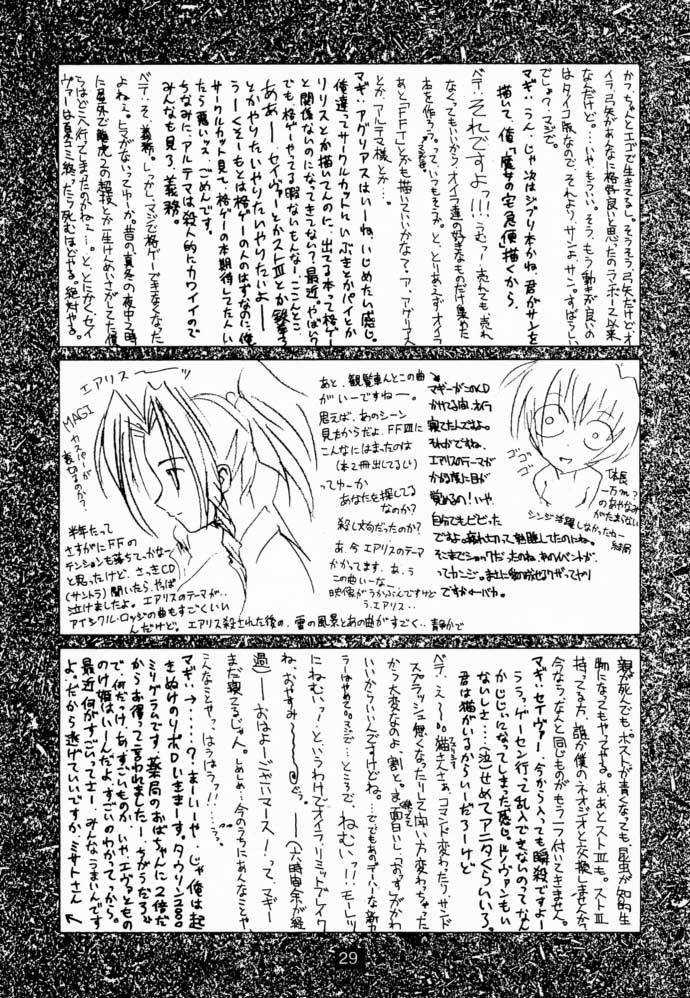 かつ、ちゃんとエゴで生きてるし。そうそう、弓矢だけど、オ
イラ、弓矢があんなに格好良いと思ったのラーボース以来
なんだけど。…いやもういい。そう、もう動きが良いの
はタイコ版なので、それより、サンよサン。すばらしい
でしょ？マジで。
マギ：うん。じゃ次はジブリ本かね。君がサンを
描いて、俺「魔女の宅急便」描くから。
ベテ：それですよ!!! うむっ！売れても売れ
なくてもいいから、オイラ達の好きなものだけ集めた
本を作ろう。って、いつもそうか。と、とりあえずオイラ
あと「FFT」とかも描いていいかなァ？ア、アグリアス
とか、アルテマ様とか…。
マギ：アグリアスはいーね。いじめたい感じ。
俺達ってサークルカットにいぶきとかパイとか
リリスとか描いてんのに、出てる本って格ゲー
と関係ないのになってきてない？最近。やばい？
でも格ゲーやってる暇ないもんなー。こんとこ。
ああー、セイヴァーとかストⅢとか鉄拳3
とかやりたいやりたいやりたいよー
うーくそーもとは格ゲーの人のはずなのに、俺
サークルカット見て、格ゲーの本期待してた人い
たら悪いッス ごめんです。
ちなみに、アルテマは殺人的にカワイイので
みんなも見ろ。義務。
ベテ：そ、義務。しっかしマジで格ゲーできなくなった
よねェ。ヒマがないってゆーか。昔の真冬の夜中2時
エアリスー
MAGI
カスパーが
裏切るのか？
あと、観覧車んとこの曲
がいーですねー。
思えば、あのシーン
見たからだよ、FFⅦに
こんなにはまったのは
（本2冊出てるし）
ってゆーか
あなたを探してる
なのか？
殺し文句だったのか？
あ、今 エアリスのテーマ
かかってます、あ、う
この曲いーなー
映像がうかぶんですけど
う、エアリス・・
マギーがこのCD
かけてる間、オイラ
寝てたんですよ。
それがですね、
エアリスのテーマが
かかる度に目が
覚めるの！いや、
自分でもビビった
ですよ。疲れ切って熟睡してたのにね。
そこまでショックだったのね、あのイベントが
ってカンジ。
ですかーバカ。
ゴゴゴ
体長
一万m？
のあやなみ
がたまがない
シンジ活躍しなかったー
結局
半年たって
さすがにFFの
テンションも落ちてっかなで
と思ったけど、さっきCD
（サントラ）聞いたら、やぱ
泣けましたよ。エアリスのテーマが・・
アイシクル・ロッジの曲もすごくいい
んだけど。エアリス殺された後の、雪の風景とあの曲がすごく・・静かで
親が死んでも、ポストが青くなっても、昆虫が知的生
物になってもやってやる。ああ、あとストⅢも。ストⅢ
持ってる方、誰か僕のネオジオCDと交換しませんか？
今なら、なんと同じものがもう一つ付いてきません。
マギ：セイヴァー、今から入っても瞬殺ですよー
ううっ、ゲーセン行って乱入できないのって、なん
かじじいになってしまった感じ。ドノヴァンもい
ないしさ…（泣）せめてアニタくらいいろ。
君は猫がいるからいーだろーけど
ベテ：え～。猫さんさぁ、コマンド変わったりサンド
スプラッシュ無くなったりして闘い方変わっちゃった
から大変なのよ、割と。ま、面白いし「おっす」がかわ
いいからいいんですけどね。…でもあのデハーな新力
ラーはやめて。マジで…ところで、ねむいっ!! モーレツ
にねむいっ！というわけでオイラ、リミットブレイク
ね、おやすみ～。―（六時間余が経
過）―おはよーごぜーマース！って、マギー
まだ寝てるじゃん。しめしめ、今のうちにあんなことや
こんなことやっ。はうはうっ!!…
マギ：→……？まーいーや。じゃ俺は起
きぬけのリポDいきまーす。タウリン2000
ミリグラムです。薬局のおばちゃんに「2倍だ
からお得」って言われましたー ちがうだろ。
で、何だっけ、あ、すごいものか。いや、エヴァともの
のけ姫はいーんだよ。すごいのわかってっから。
最近、何がすごいってさー、みんなうまいんです
よ。だから逃げていいですか、ミサトさん
29